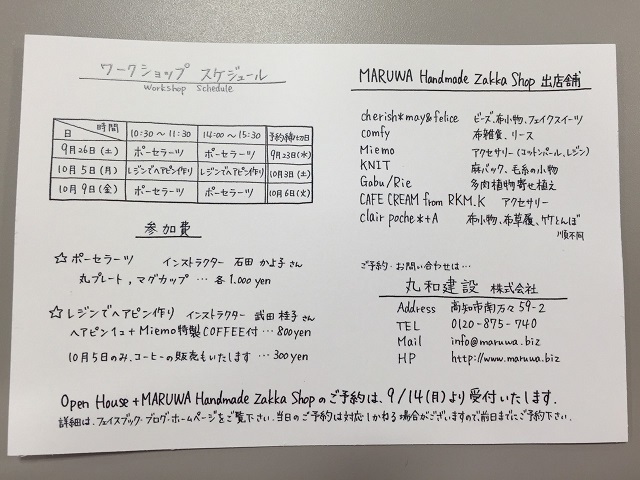 ワークショップ スケジュール
Workshop Schedule
日 時間 10:30～11:30 14:00～15:30 予約締切日
9月26日(土) ポーセラーツ ポーセラーツ 9月23日(水)
10月5日(月) レジンでヘアピン作り レジンでヘアピン作り 10月3日(土)
10月9日(金) ポーセラーツ ポーセラーツ 10月6日(火)
参加費
☆ポーセラーツ インストラクター 石田 かよ子さん
丸プレート,マグカップ … 各1.000yen
☆レジンでヘアピン作り インストラクター 武田 桂子さん
ヘアピン1コ+Miemo特製COFFEE付 … 800yen
10月5日のみ.コーヒーの販売もいたします … 300yen
MARUWA Handmade Zakka Shop 出店舗
cherish*may&felice ビーズ.布小物.フェイクスイーツ
comfy 布雑貨.リース
Miemo アクセサリー(コットンパール.レジン)
KNIT 麻バック.毛糸の小物
Gobu/Rie 多肉植物寄せ植え
CAFE CREAM from RKM.K アクセサリー
clair poche*+A 布小物.布草履.竹とんぼ
順不同
ご予約・お問い合わせは…
丸和建設 株式会社
Address 高知市南万々59-2
TEL 0120-875-740
Mail info@maruwa.biz
HP http://www.maruwa.biz
Open House+MARUWA Handmade Zakka Shopのご予約は、9/14(月)より受付いたします.
詳細は.フェイスブック・ブログ・ホームページをご覧下さい.当日のご予約は対応しかねる場合がございますので、前日までにご予約下さい.